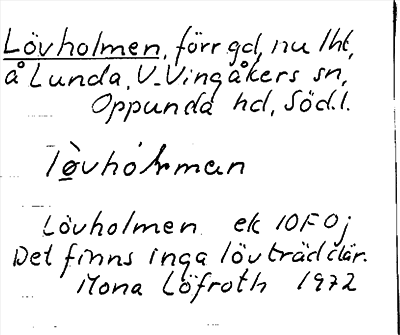 Lövholmen, förr gd, nu lht,
å Lunda, V-Vingåkers sn,
Oppunda hd, Söd.l.
Lövholmen ek 10F0j
Det finns inga lövträd där.
Mona Löfroth 1972